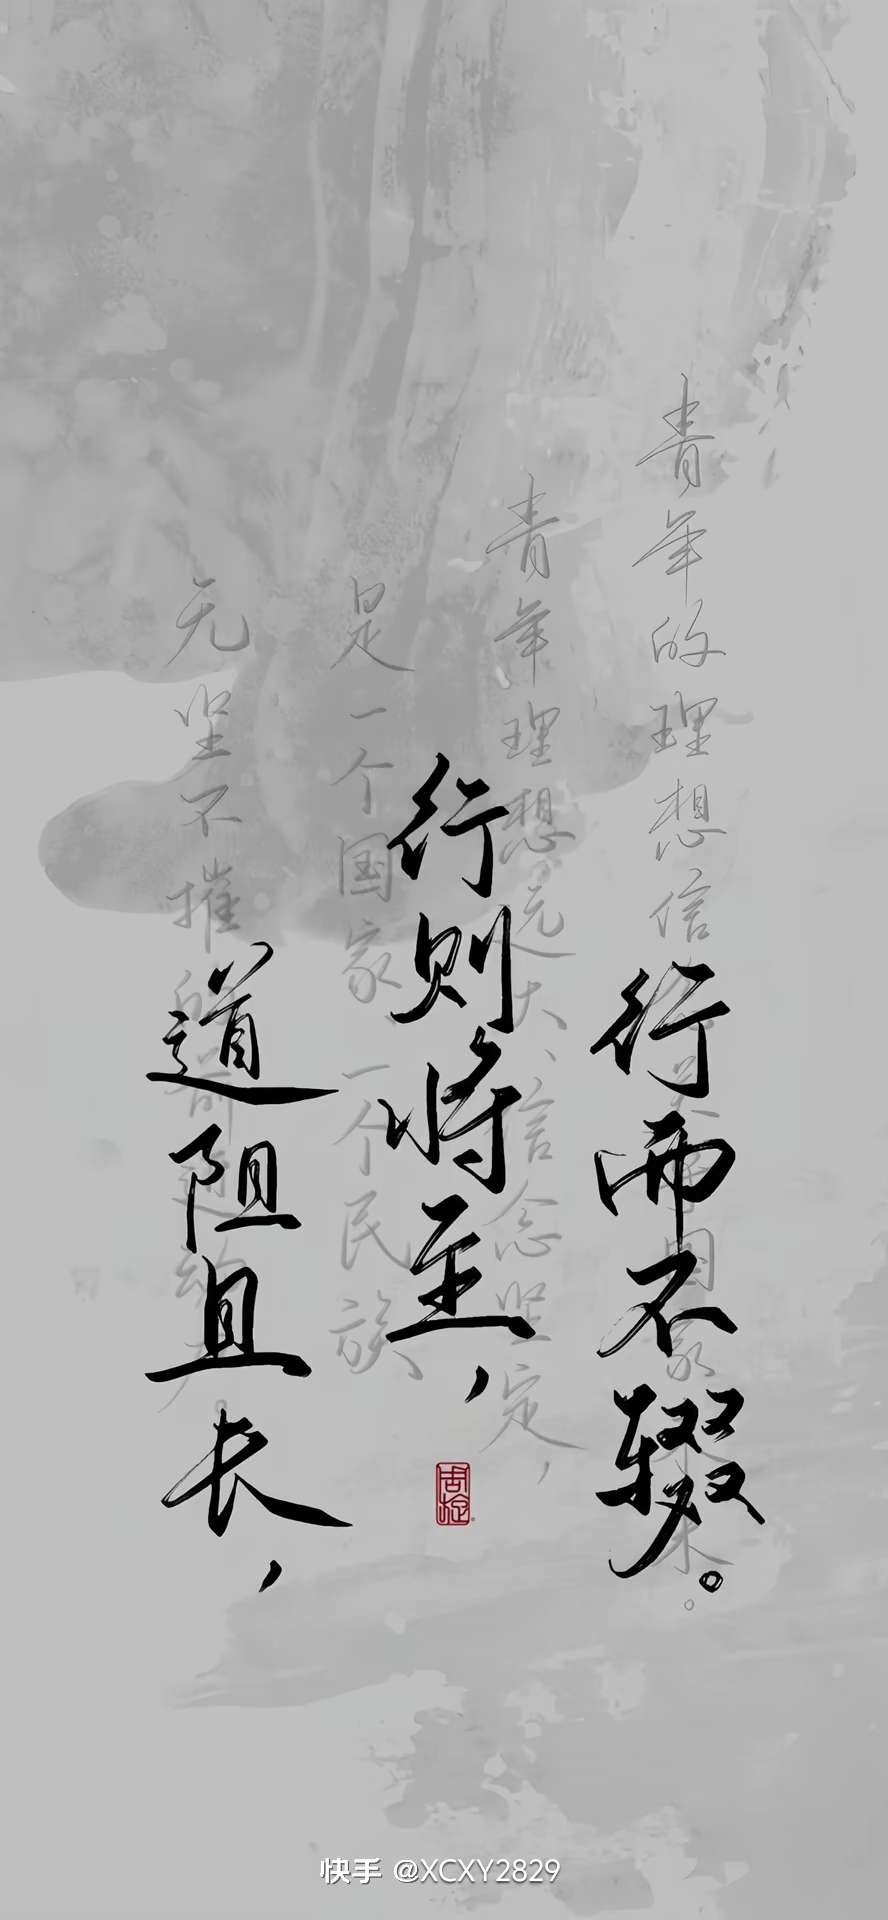 道阻且长，
行则将至，
行而不辍。
青年的理想信念关乎国家未来。
青年理想远大、信念坚定，
是一个国家、一个民族
无坚不摧的前进动力。
快手 @XCXY2829